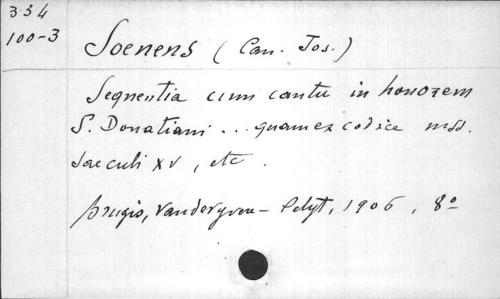 334
100-3
Soenens (Can. Jos.)
Sequentia cum cantu in honorem
S. Donatiani ... quam ex codice mss.
saeculi XV, etc.
Brugis, Vandevyvere - Petyt, 1906, 8º